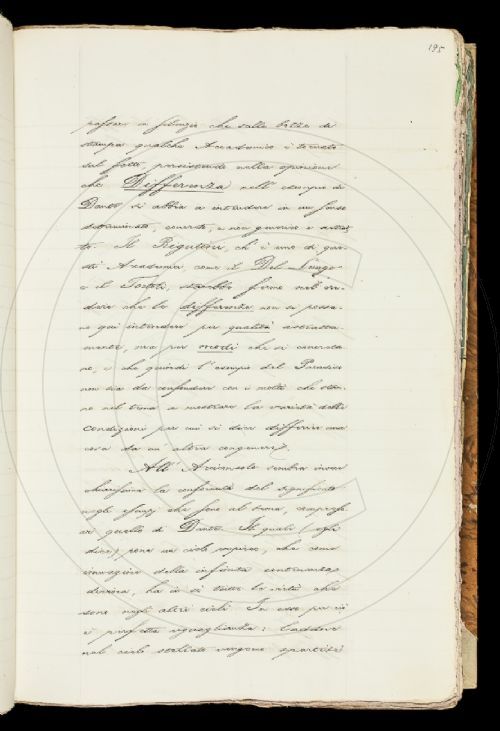 195
passare in silenzio che sulle bozze di
stampa qualche Accademico è tornato
sul fatto, persistendo nella opinione
che Differenza nell' esempio di
Dante si abbia a intendere in un senso
determinato, concreto, e non generico e astrat
to. Il Rigutini, ch' è uno di que-
sti Accademici, come il Del Lungo
e il Tortoli, sarebbe fermo nel cre-
dere che le differenze non si possa-
no qui intendere per qualità astratta-
mente, ma per modi che si concreta
no, e che quindi l' esempio del Paradiso
non sia da confondere con i molti che stan-
no nel tema a mostrare la varietà delle
condizioni per cui si dice differire una
cosa da un' altra congenere.
All' Arciconsolo sembra invece
chiarissima la conformità del significato
negli esempj che sono al tema, compreso-
vi quello di Dante. Il quale (egli
dice) pone un cielo empireo, che come
emanazione della infinita continenza
divina, ha in sè tutte le virtù che
sono negli altri cieli. In esso per ciò
è perfetta eguaglianza: laddove
nel cielo stellato vengono spartite